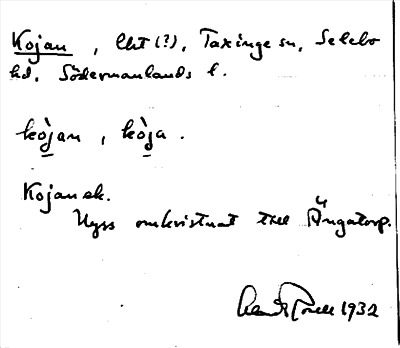 Kojan, lht (?), Taxinge sn, Selebo
hd, Södermanlands l.
kòjan, kòja.
Kojan ek.
Nyss omkristnat till Ängatorp.
1932